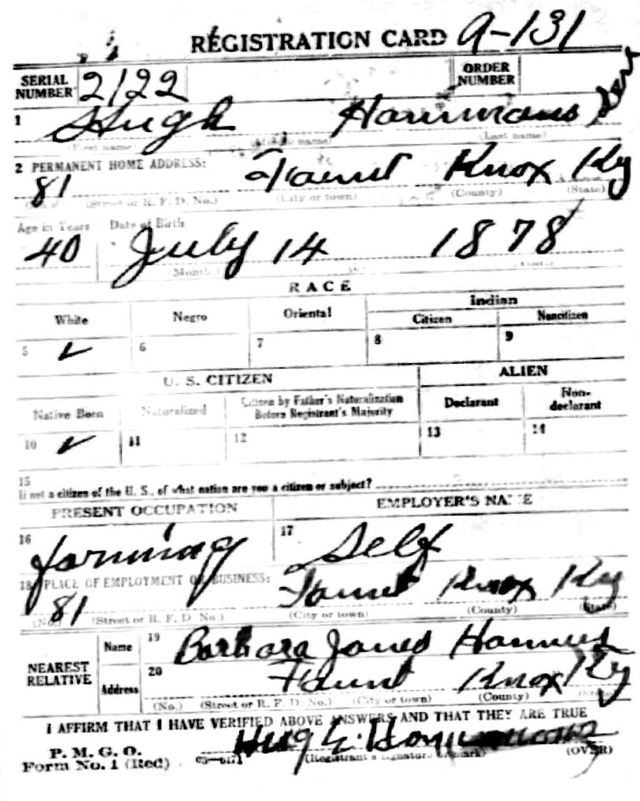 REGISTRATION CARD A-131
SERIAL NUMBER 2122 ORDER NUMBER
1 Hugh Hammons
(First name) (Middle name) (Last name)
2 PERMANENT HOME ADDRESS:
81 Knox Ky
(No.) (Street or R. F. D. No.) (City or town) (County) (State)
Age in Years Date of Birth
40 July 14 1878
(Month)
RACE
White Negro Oriental Indian
Citizen Noncitizen
5 ✓ 6 7 8 9
U. S. CITIZEN ALIEN
Native Born Naturalized Citizen by Father's Naturalization Before Registrant's Majority Declarant Non-declarant
10 ✓ 11 12 13 14
15
If not a citizen of the U. S., of what nation are you a citizen or subject?
PRESENT OCCUPATION EMPLOYER'S NAME
16 farming 17 Self
18 PLACE OF EMPLOYMENT OR BUSINESS:
81 Knox Ky
(No.) (Street or R. F. D. No.) (City or town) (County) (State)
NEAREST RELATIVE Name 19 Barbara
Address 20 Knox Ky
(No.) (Street or R. F. D. No.) (City or town) (County) (State)
I AFFIRM THAT I HAVE VERIFIED ABOVE ANSWERS AND THAT THEY ARE TRUE
P. M. G. O.
Form No. 1 (Red) (Registrant's signature or mark) (OVER)